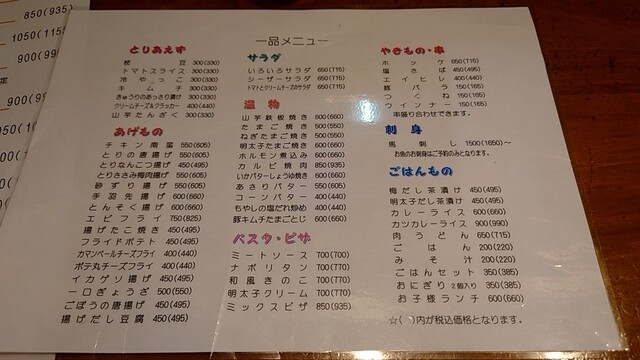 850(935)
1050(115
900(99
900(9
一品メニュー
とりあえず
枝豆 300(330)
トマトスライス 300(330)
冷やっこ 300(330)
キムチ 300(330)
きゅうりのあっさり漬け 300(330)
クリームチーズ&クラッカー 400(440)
山芋たんざく 300(330)
あげもの
チキン南蛮 550(605)
とりの唐揚げ 550(605)
とりなんこつ揚げ 450(495)
とりささみ梅肉揚げ 550(605)
砂ずり揚げ 550(605)
手羽先揚げ 600(660)
とんそく揚げ 600(660)
エビフライ 750(825)
揚げたこ焼き 450(495)
フライドポテト 450(495)
カマンベールチーズフライ 400(440)
ポテ丸チーズフライ 400(440)
イカゲソ揚げ 450(495)
一口ぎょうざ 500(550)
ごぼうの唐揚げ 450(495)
揚げだし豆腐 450(495)
サラダ
いろいろサラダ 650(715)
シーザーサラダ 650(715)
トマトとクリームチーズのサラダ 650(715)
温物
山芋鉄板焼き 600(660)
たまご焼き 500(550)
ねぎたまご焼き 500(550)
明太子たまご焼き 600(660)
ホルモン煮込み 600(660)
カルビ焼肉 850(935)
いかバターしょうゆ焼き 600(660)
あさりバター 550(605)
コーンバター 400(440)
もやしの塩だれ炒め 400(440)
豚キムチたまごとじ 600(660)
パスタ・ピザ
ミートソース 700(770)
ナポリタン 700(770)
和風きのこ 700(770)
明太子クリーム 700(770)
ミックスピザ 850(935)
やきもの・串
ホッケ 650(715)
塩さば 450(495)
エイヒレ 400(440)
豚バラ 150(165)
つくね 150(165)
ウインナー 150(165)
串盛り合わせできます。
刺身
馬刺し 1500(1650)~
お魚のお刺身はご予約のみとなります。
ごはんもの
梅だし茶漬け 450(495)
明太子だし茶漬け 450(495)
カレーライス 600(660)
カツカレーライス 900(990)
肉うどん 650(715)
ごはん 200(220)
みそ汁 200(220)
ごはんセット 350(385)
おにぎり 2個入り 350(385)
お子様ランチ 600(660)
☆( )内が税込価格となります。